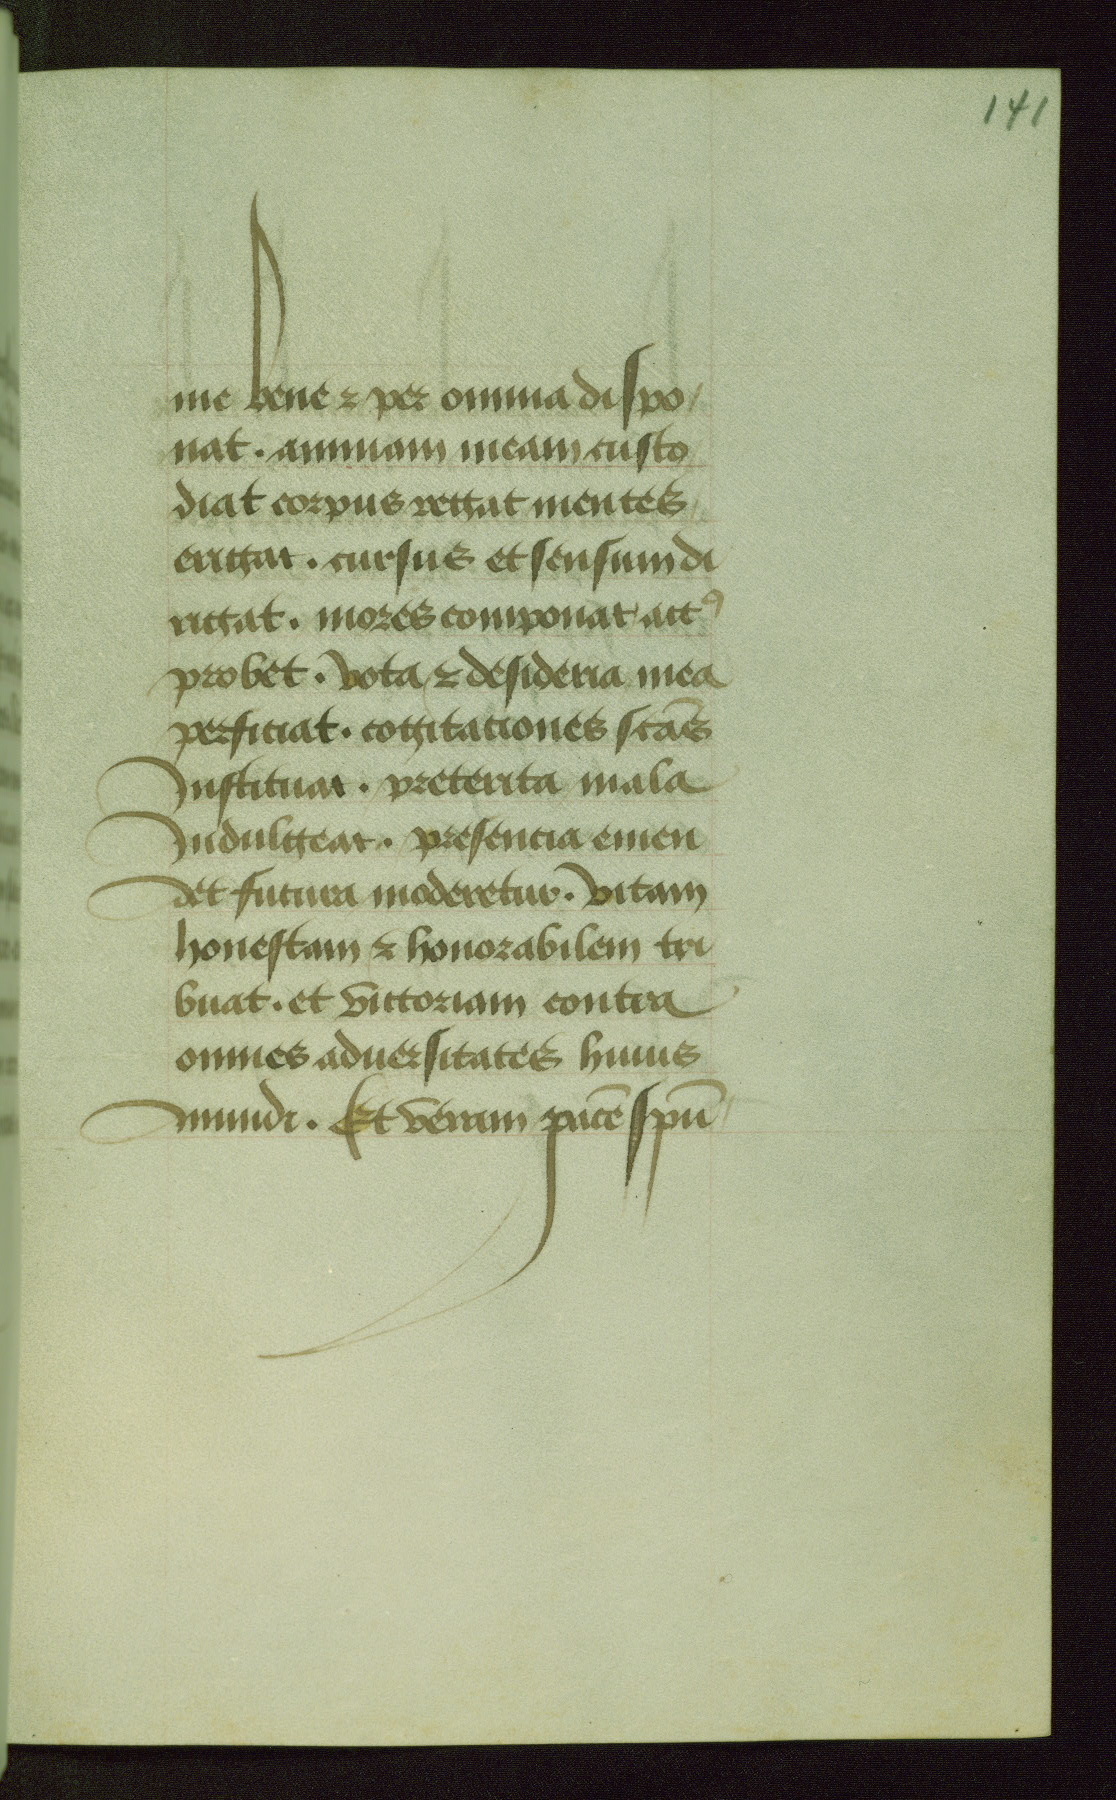 141
me bene ⁊ per omnia dispo/
nat. animam meam custo
diat corpus regat mentes
erigat. cursus et sensum di
rigat. mores componat actꝰ
probet. vota ⁊ desideria mea
perficiat. cogitaciones scās
Instituat. preterita mala
Indulgeat. presencia emen
det futura moderetur. vitam
honestam ⁊ honorabilem tri
buat. et victoriam contra
omnes aduersitates huius
mundi. Et veram pacē spū/